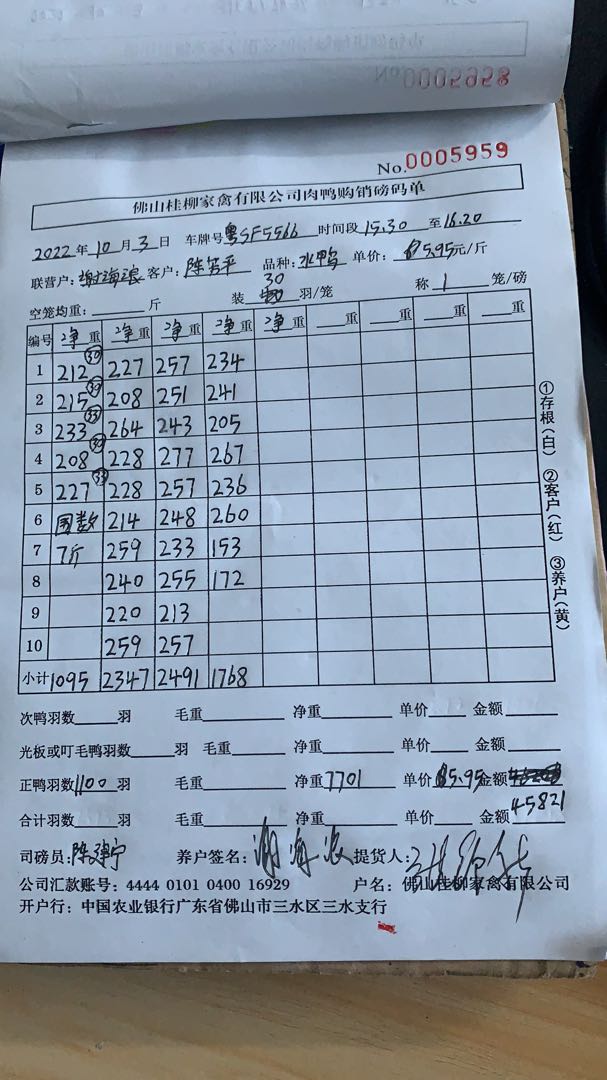 No.0005958
No.0005959
佛山桂柳家禽有限公司肉鸭购销磅码单
2022年10月3日 车牌号粤SF5566 时间段15.30至16.20
联营户:谢海浪 客户:陈 平 品种:水鸭 单价:5.95元/斤
30
空笼均重:____斤 装 羽/笼 称1笼/磅
编号 净重 净重 净重 净重 净重 重 重 重 重
1 212 ㉚ 227 257 234
2 215 208 251 241
3 233 264 243 205
4 208 228 277 267
5 227 228 257 236
6 数 214 248 260
7 7斤 259 233 153
8 240 255 172
9 220 213
10 259 257
小计 1095 2347 2491 1768
①存根(白) ②客户(红) ③养户(黄)
次鸭羽数____羽 毛重____ 净重____ 单价____ 金额____
光板或叮毛鸭羽数____羽 毛重____ 净重____ 单价____ 金额____
正鸭羽数1100羽 毛重____ 净重7701 单价5.95 金额
45821
合计羽数____羽 毛重____ 净重____ 单价____ 金额
司磅员:陈建宁 养户签名:谢海浪 提货人:
公司汇款账号:4444 0101 0400 16929 户名:佛山桂柳家禽有限公司
开户行:中国农业银行广东省佛山市三水区三水支行